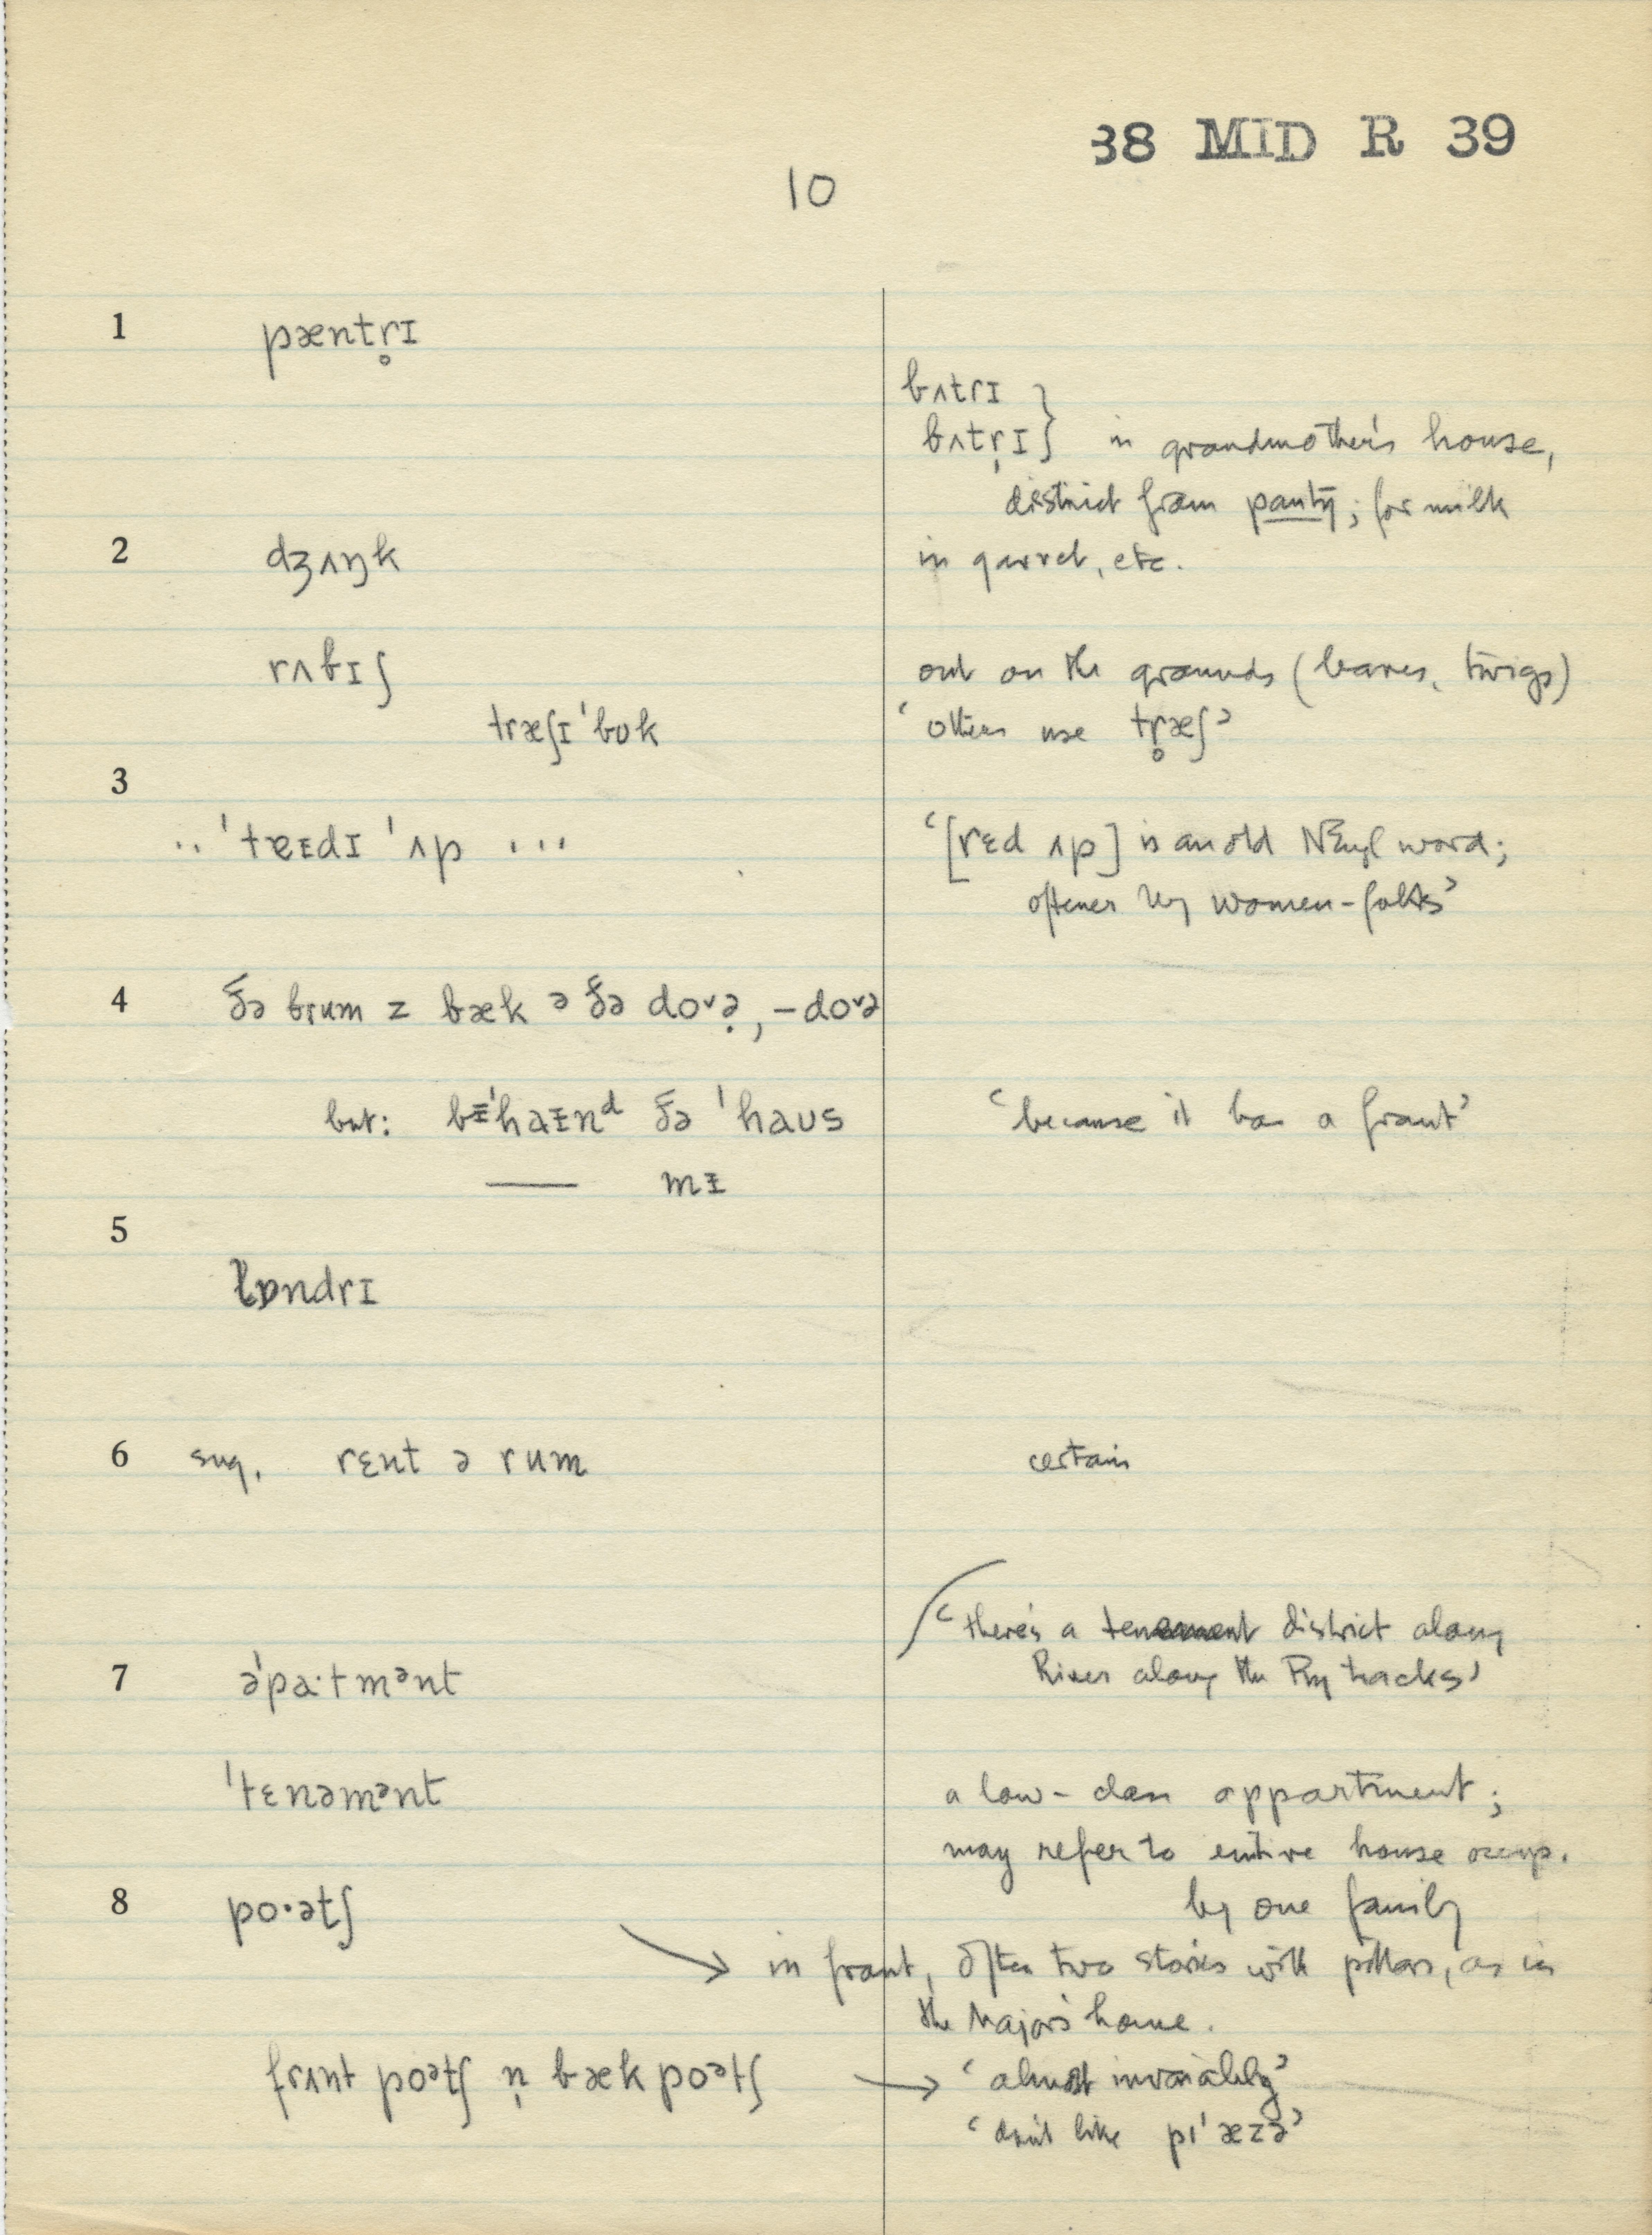 38 MID R 39
10
1 pæntr̥ɪ
bʌtrɪ
bʌtr̩ɪ } in grandmother's house,
district from pantry; for milk
2 dʒʌŋk in garret, etc.
rʌbɪʃ out on the grounds (leaves, twigs)
træʃɪ'bʊk ‘others use tr̥æʃ’
3
.. 'tɐɪdɪ 'ʌp ... ‘[rɛd ʌp] is an old NEngl word;
oftener by women-folks’
4 ðə brum z bæk ə ðə doᵛə̣, –doᵛə
but: bᵻ'haᵻnᵈ ðə 'haʊs ‘because it has a front’
— mᵻ
5
lɒndrɪ
6 sug. rɛnt ə rum certain
‘there's a tenement district along
River along the Ry tracks’
7 ə'pa·tmᵊnt
'tɛnəmᵊnt a low-class appartment;
may refer to entire house occup.
8 po·ətʃ by one family
→ in front, often two stories with pillars, as in
the Major's home.
frʌnt poᵊtʃ n̩ bæk poᵊtʃ → ‘almost invariably’
‘don't like pɪ'æzə’